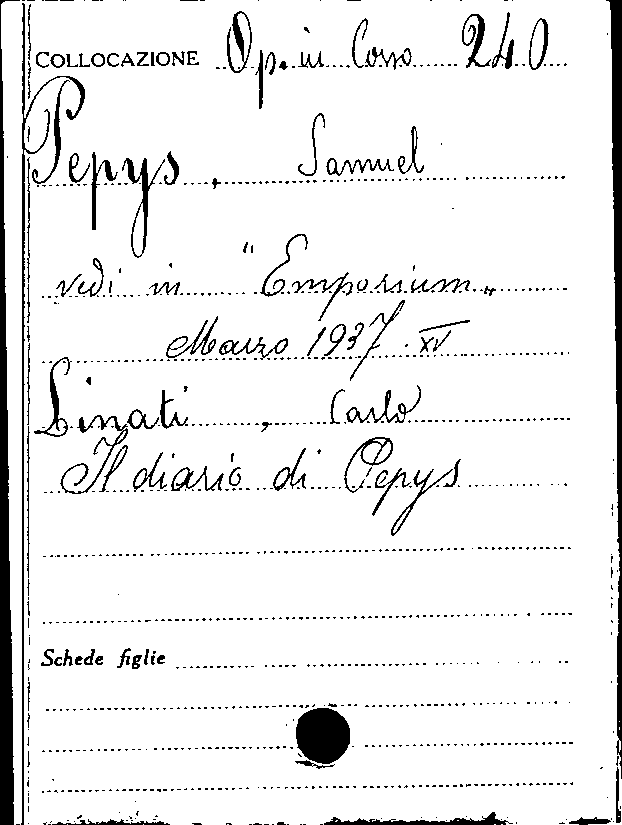 COLLOCAZIONE Op. in Corso 240
Pepys, Samuel
vedi in "Emporium„
Marzo 1937. XV
Linati, Carlo
Il diario di Pepys
Schede figlie